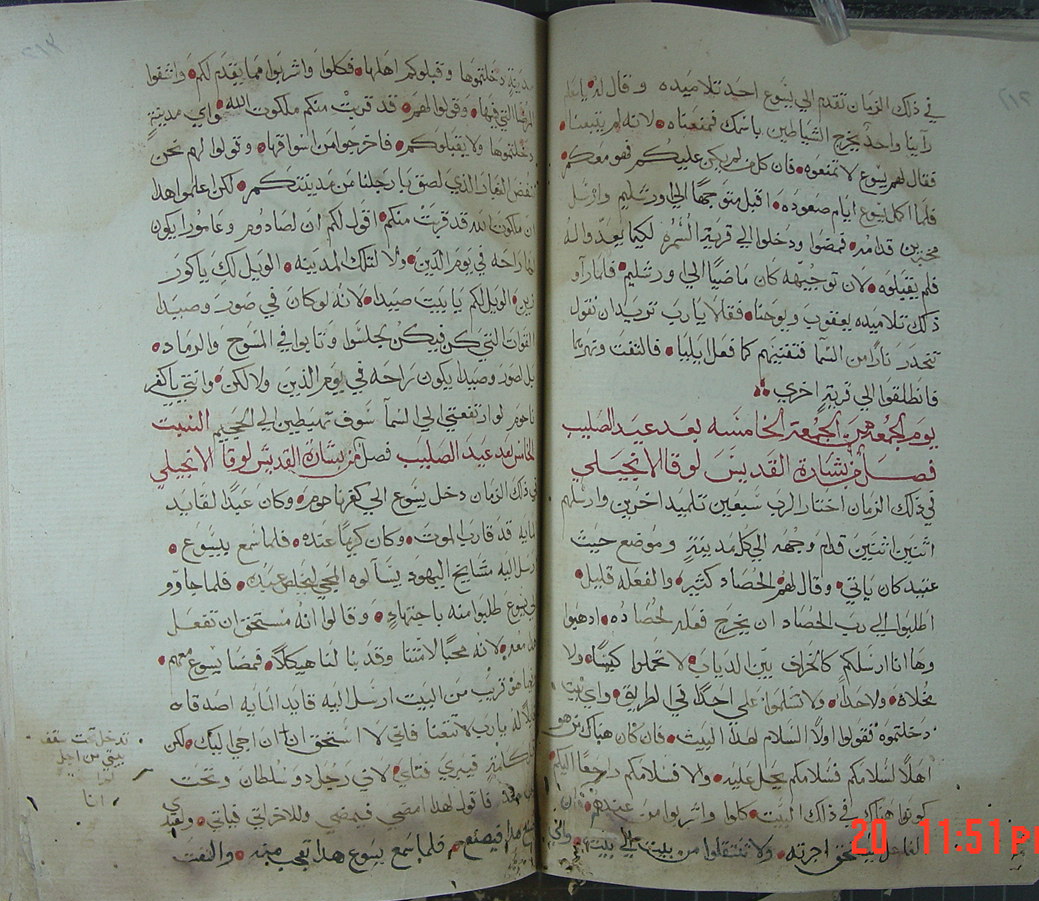 في ذلك الزمان تقدم الي يسوع احد تلاميذه وقال له يا معلم
راينا واحدًا يخرج الشياطين باسمك فمنعناه لانه لم يتبعنا
فقال لهم يسوع لا تمنعوه فان كل من لم يكن عليكم فهو معكم
فلما اكمل يسوع ايام صعوده اقبل متوجهًا الي اورشليم وارسل
مخبرين قدامه فمضوا ودخلوا الي قرية السمره لكيما يعدوا له
فلم يقبلوه لان توجيهه كان ماضيًا الي اورشليم فلما راو
ذلك تلاميده يعقوب ويوحنا فقالا يا رب تريد ان نقول
تنحدر نارًا من السما فتفنيهم كما فعل ايليا فالتفت ونهرهما
فانطلقوا الي قرية اخري
يوم الجمعه من الجمعة الخامسه بعد عيد الصليب
فصل من بشارة القديس لوقا الانجيلي
في ذلك الزمان اختار الرب سبعين تلميد اخرين وارسلهم
اثنين اثنين قدام وجهه الي كل مدينة وموضع حيث
عتيد كان ياتي وقال لهم الحصاد كثير والفعله قليل
اطلبوا الي رب الحصاد ان يخرج فعلة لحصاده ادهبوا
وها انا ارسلكم كالخراف بين الدياب لا تحملوا كيسًا ولا
مخلاة ولا حداً ولا تسلموا علي احدًا في الطريق واي بيت
دخلتموه فقولوا اولاً السلام لهدا البيت فان كان هناك من هو
اهلًا لسلامكم فسلامكم يحل عليه والا فسلامكم راجعًا اليكم
كونوا هناك في ذلك البيت كلوا واشربوا من عندهم ان
الفاعل يستحق اجرته ولا تنتقلوا من بيت الي بيت واي
مدينة دخلتموها وقبلوكم اهلها فكلوا واشربوا مما يقدم لكم واشفوا
المرضا التي فيها وقولوا لهم قد قربت منكم ملكوت الله واي مدينة
دخلتموها ولا يقبلوكم فاخرجوا من اسواقها وقولوا لهم نحن
ننفض الغبار الذي لصق بارجلنا من مدينتكم لكن اعلموا هدا
ان ملكوت الله قد قربت منكم اقول لكم ان لصادوم وعامورا يكون
لهما راحه في يوم الدين ولا لتلك المدينه الويل لك يا كور
زين الويل لكم يا بيت صيدا لانه لو كان في صور وصيدا
القوات التي كن فيكن لجلسوا وتابوا في المسوح والرماد
بل لصور وصيدا يكون راحه في يوم الدين ولا لكن وانتي يا كفر
ناحوم لو ارتفعتي الي السما سوف تهبطين الي الجحيم السبت
الخامس بعد عيد الصليب فصل من بشارة القديس لوقا الانجيلي
في ذلك الزمان دخل يسوع الي كفرناحوم وكان عبدًا لقايد
المايه قد قارب الموت وكان كريمًا عنده فلما سمع بيسوع
ارسل اليه مشايخ اليهود يسألوه المجي ليخلص عبده فلما جاوو
الي يسوع طلبوا منه باجتهاد وقالوا انه مستحق ان تفعل
هدا معه لانه محبًا لامتنا وقد بنا لنا هيكلاً فمضا يسوع معهم
فلما هو قريب من البيت ارسل اليه قايد المايه اصدقاه
قايلًا له يا رب لا تتعنا فاني لا استحق ان انا ان اجي اليك لكن
قل كلمة فيبري فتاي لاني رجل دو سلطان وتحت
فاقول لهدا امضي فيمضي وللاخر اتي فياتي ولعبدي
اصنع هدا فيصنع فلما سمع يسوع هدا تعجب منه والتفت
تدخل تحت سقف
بيتي من اجل
انا
20 11:51 pm